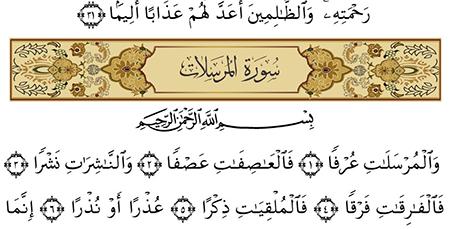 رَحْمَتِهِۦ ۚ وَٱلظَّـٰلِمِينَ أَعَدَّ لَهُمْ عَذَابًا أَلِيمًۢا ﴿٣١﴾
سُورَةُ المُرسَلَات
بِسْمِ ٱللَّهِ ٱلرَّحْمَـٰنِ ٱلرَّحِيمِ
وَٱلْمُرْسَلَـٰتِ عُرْفًا ﴿١﴾ فَٱلْعَـٰصِفَـٰتِ عَصْفًا ﴿٢﴾ وَٱلنَّـٰشِرَٰتِ نَشْرًا ﴿٣﴾
فَٱلْفَـٰرِقَـٰتِ فَرْقًا ﴿٤﴾ فَٱلْمُلْقِيَـٰتِ ذِكْرًا ﴿٥﴾ عُذْرًا أَوْ نُذْرًا ﴿٦﴾ إِنَّمَا